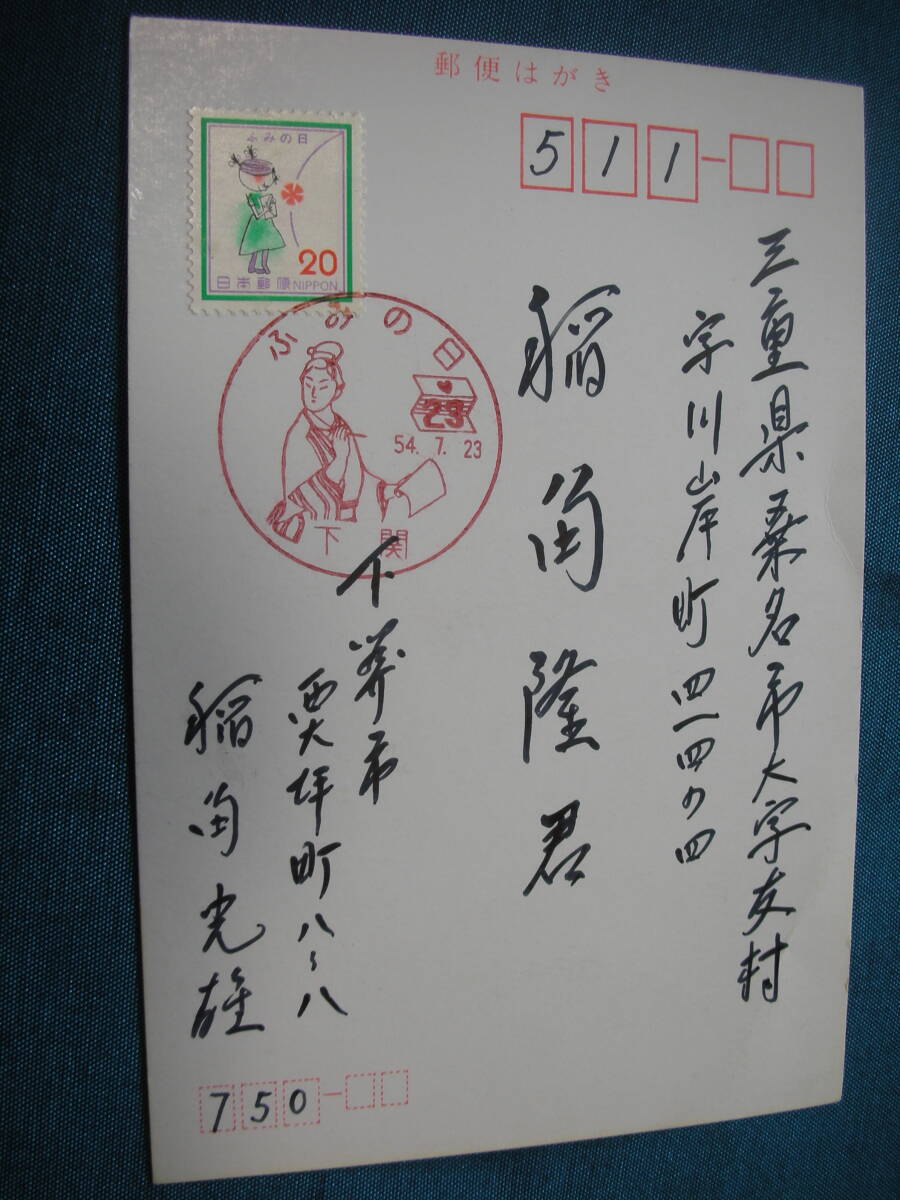 郵便はがき
ふみの日
20
日本郵便NIPPON
511
ふみの日
23
54.7.23
下関
三重県桑名市大字友村
字川山岸町四一四ノ四
稲角隆君
下関市
西大坪町八〜八
稲角光雄
750